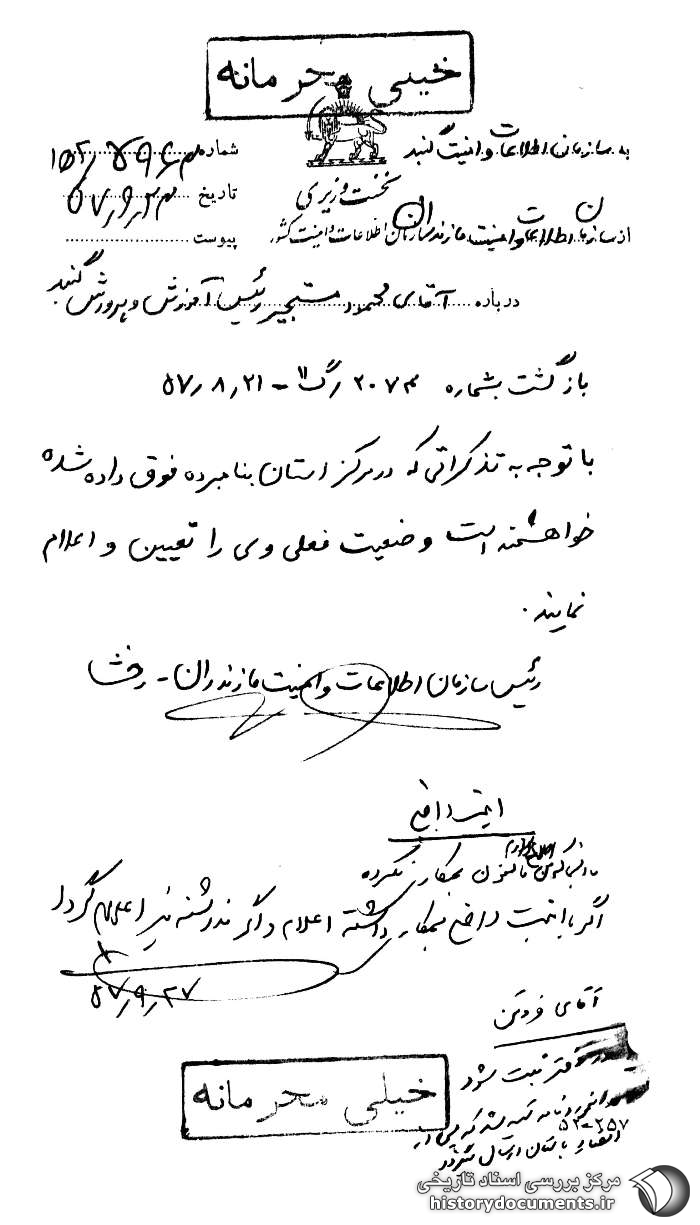 خیلی محرمانه
به سازمان اطلاعات و امنیت گنبد
شماره
نخست وزیری
تاریخ ۵۷٫۹٫۲۳
از سازمان اطلاعات و امنیت مازندران
سازمان اطلاعات و امنیت کشور
پیوست
درباره آقای محمود مستجیر رئیس آموزش و پرورش گنبد
بازگشت بشماره ۲۰۷۳ / گ ۱۱ - ۵۷٫۸٫۲۱
با توجه به تذکراتی که در مرکز استان بنامبرده فوق داده شده
خواهشمند است وضعیت فعلی وی را تعیین و اعلام
نمایند .
رئیس سازمان اطلاعات و امنیت مازندران - رخشا
امنیت داخلی
تاکنون همکاری نکرده
اگر با امنیت داخلی همکاری داشته اعلام و اگر نداشته نیز اعلام گردد
۵۷٫۹٫۲۷
آقای فردین
دفتر ثبت شود
۵۲-۲۵۷
خیلی محرمانه
مرکز بررسی اسناد تاریخی
historydocuments.ir